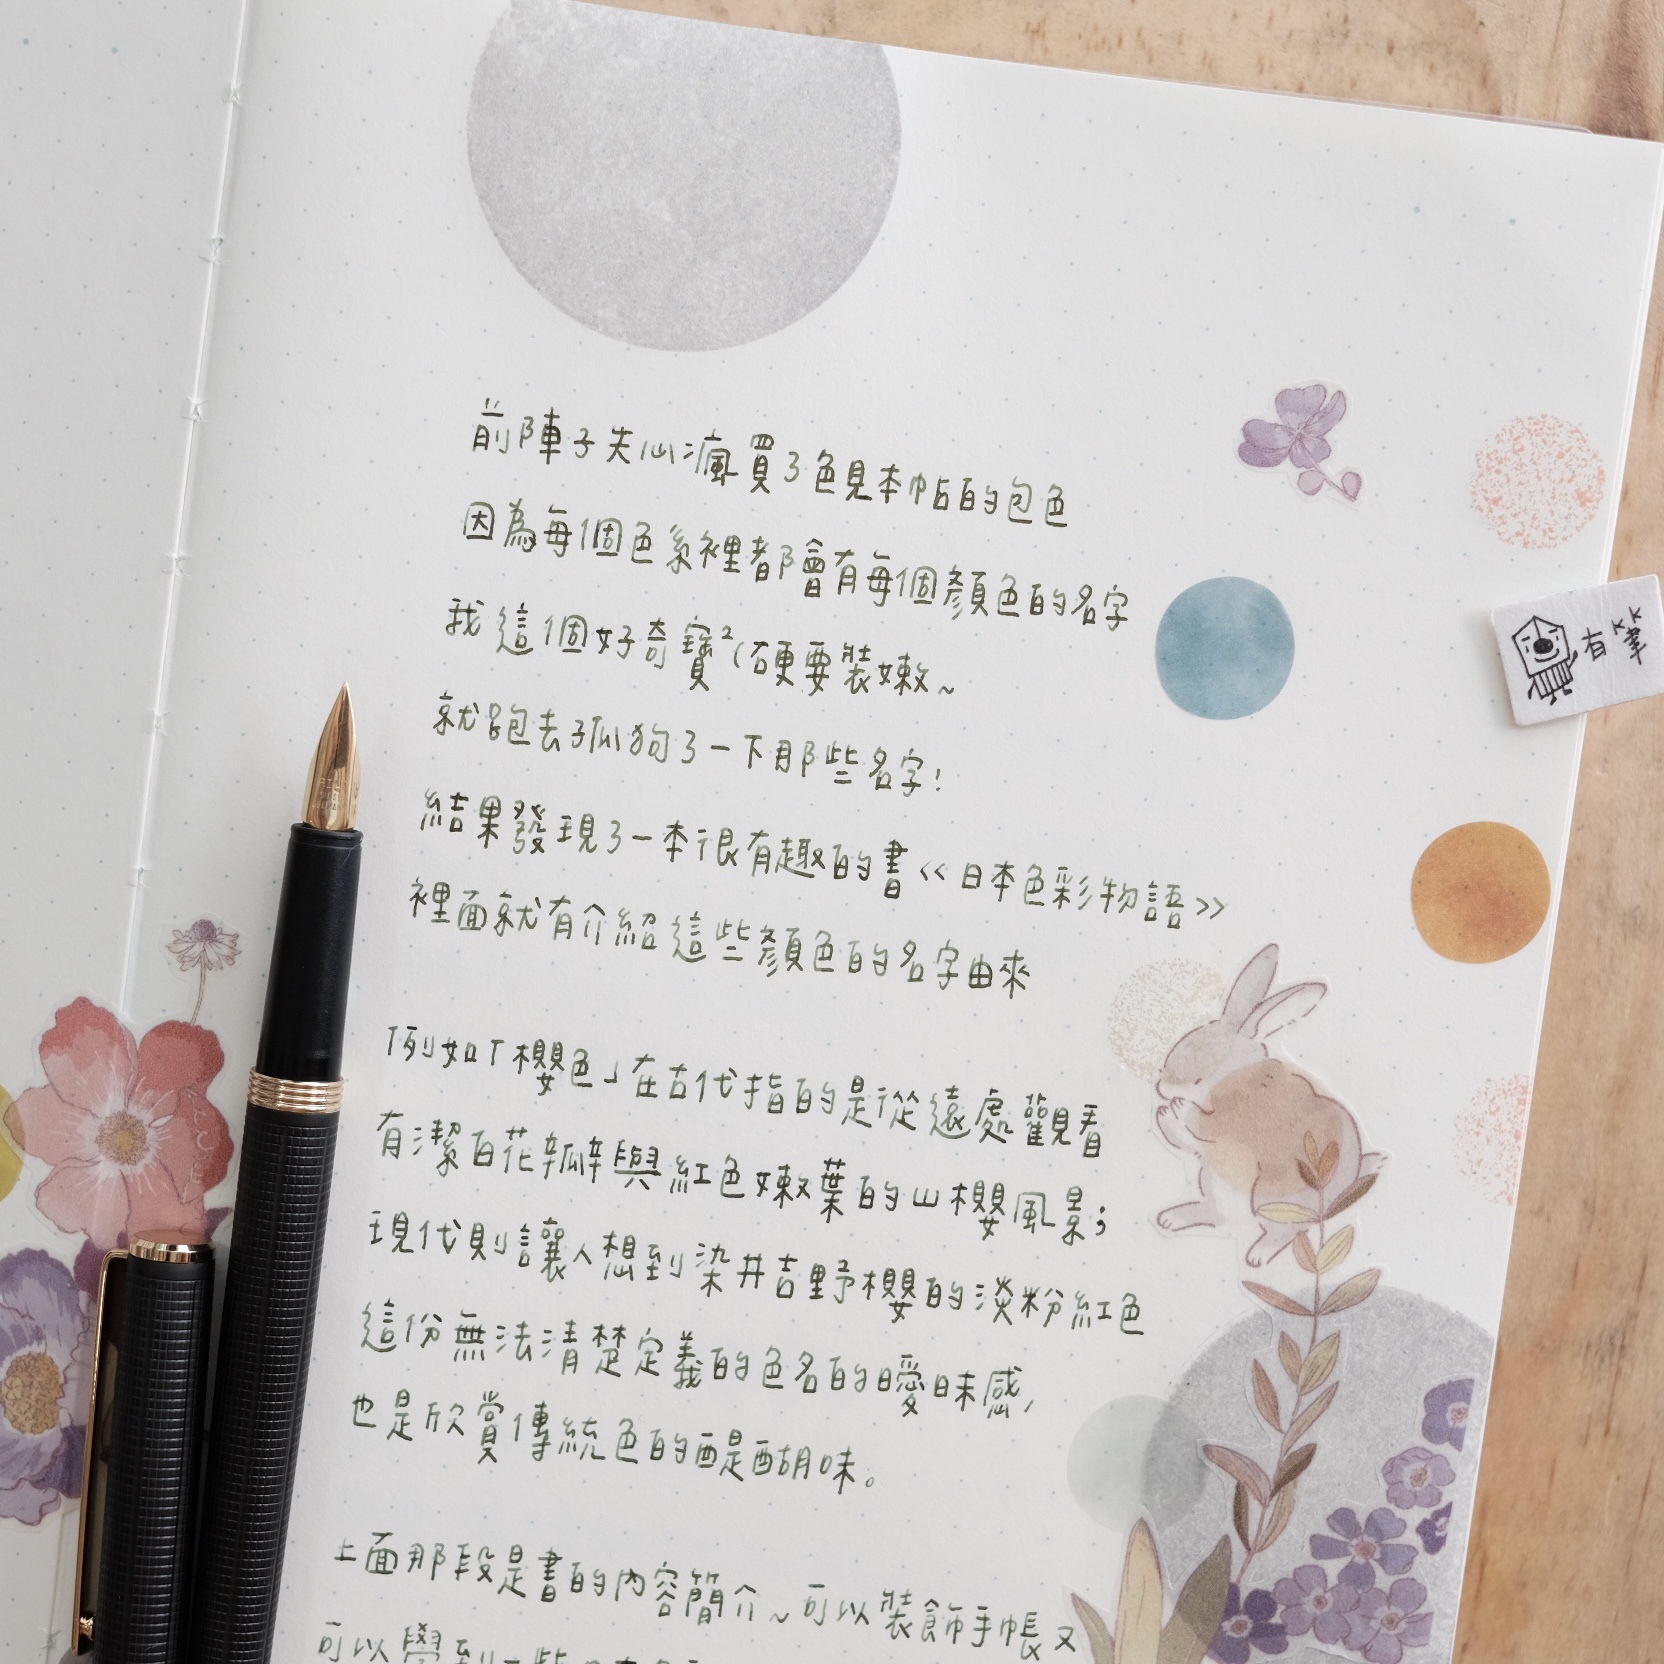 前陣子失心瘋買了色見本帖的包色
因為每個色系裡都會有每個顏色的名字
我這個好奇寶²(硬要裝嫩~
就跑去孤狗了一下那些名字!
結果發現了一本很有趣的書《日本色彩物語》
裡面就有介紹這些顏色的名字由來
例如「櫻色」在古代指的是從遠處觀看
有潔白花瓣與紅色嫩葉的山櫻風景;
現代則讓人想到染井吉野櫻的淡粉紅色
這份無法清楚定義的色名的曖昧感,
也是欣賞傳統色的醍醐味。
上面那段是書的內容簡介~可以裝飾手帳又
可以學到一些
有筆
KK